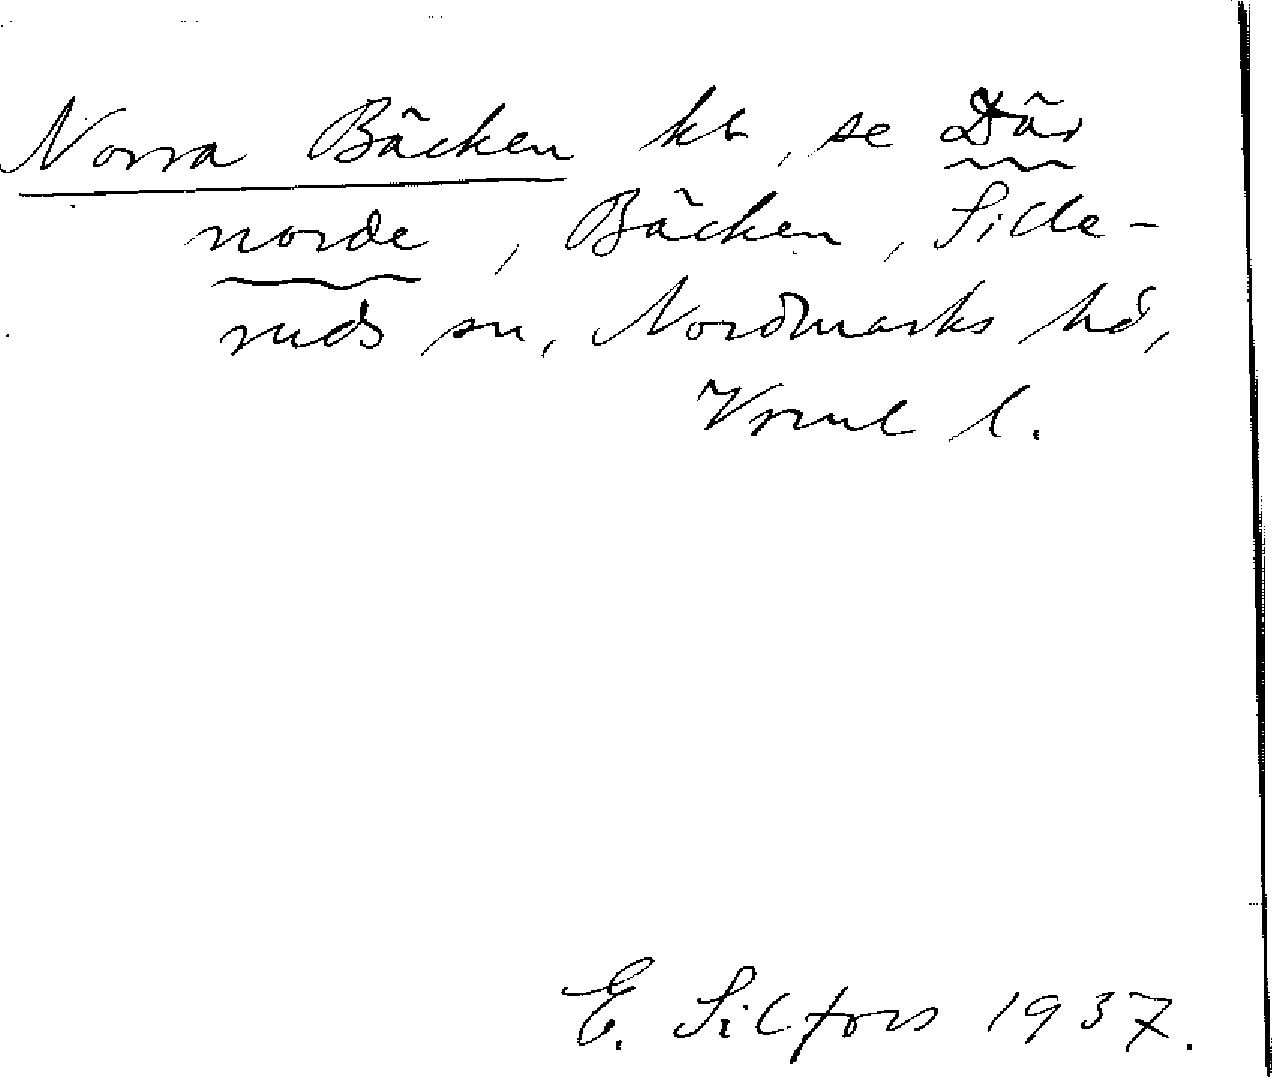 Norra Bäcken kb, se Där
norde, Bäcken, Sille-
ruds sn, Nordmarks hd,
Vrml l.
E. Silfors 1937.